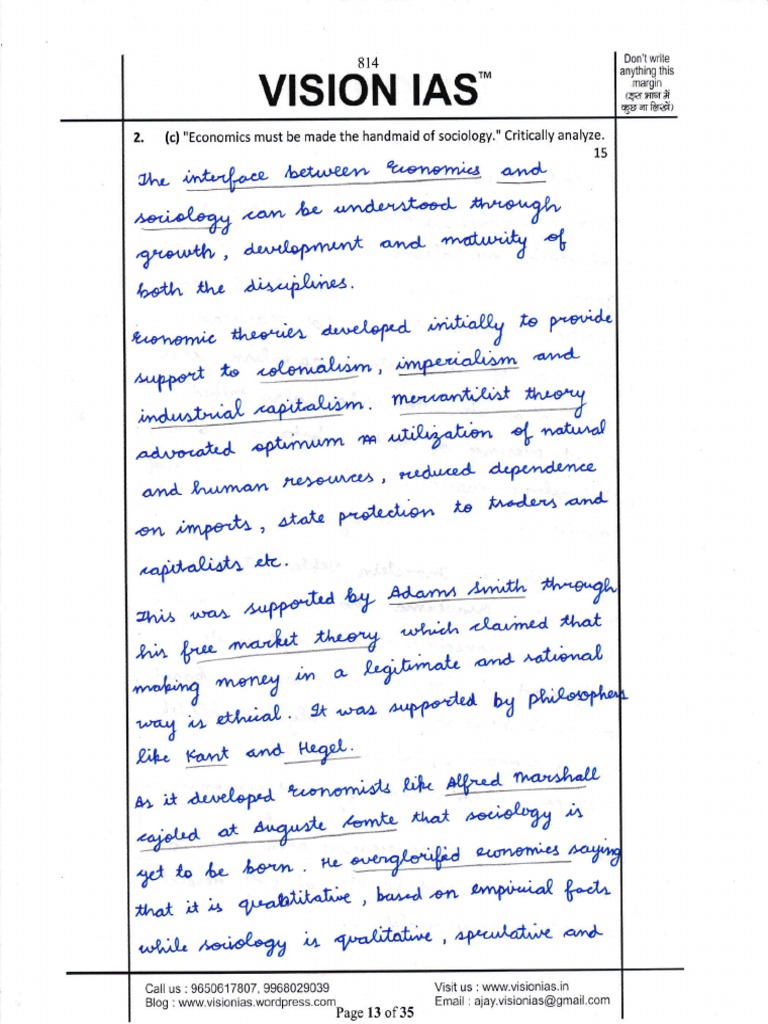 814
VISION IAS™
Don't write
anything this
margin
(इस भाग में
कुछ ना लिखें)
2. (c) "Economics must be made the handmaid of sociology." Critically analyze.
15
The interface between Economics and
sociology can be understood through
growth, development and maturity of
both the disciplines.
Economic theories developed initially to provide
support to colonialism, imperialism and
industrial capitalism. Mercantilist theory
advocated optimum utilization of natural
and human resources, reduced dependence
on imports, state protection to traders and
capitalists etc.
This was supported by Adams Smith through
his free market theory which claimed that
making money in a legitimate and rational
way is ethical. It was supported by philosophers
like Kant and Hegel.
As it developed Economists like Alfred Marshall
cajoled at Auguste Comte that sociology is
yet to be born. He overglorified economics saying
that it is quantitative, based on empirical facts
while sociology is qualitative, speculative and
Call us : 9650617807, 9968029039
Visit us : www.visionias.in
Blog : www.visionias.wordpress.com
Email : ajay.visionias@gmail.com
Page 13 of 35